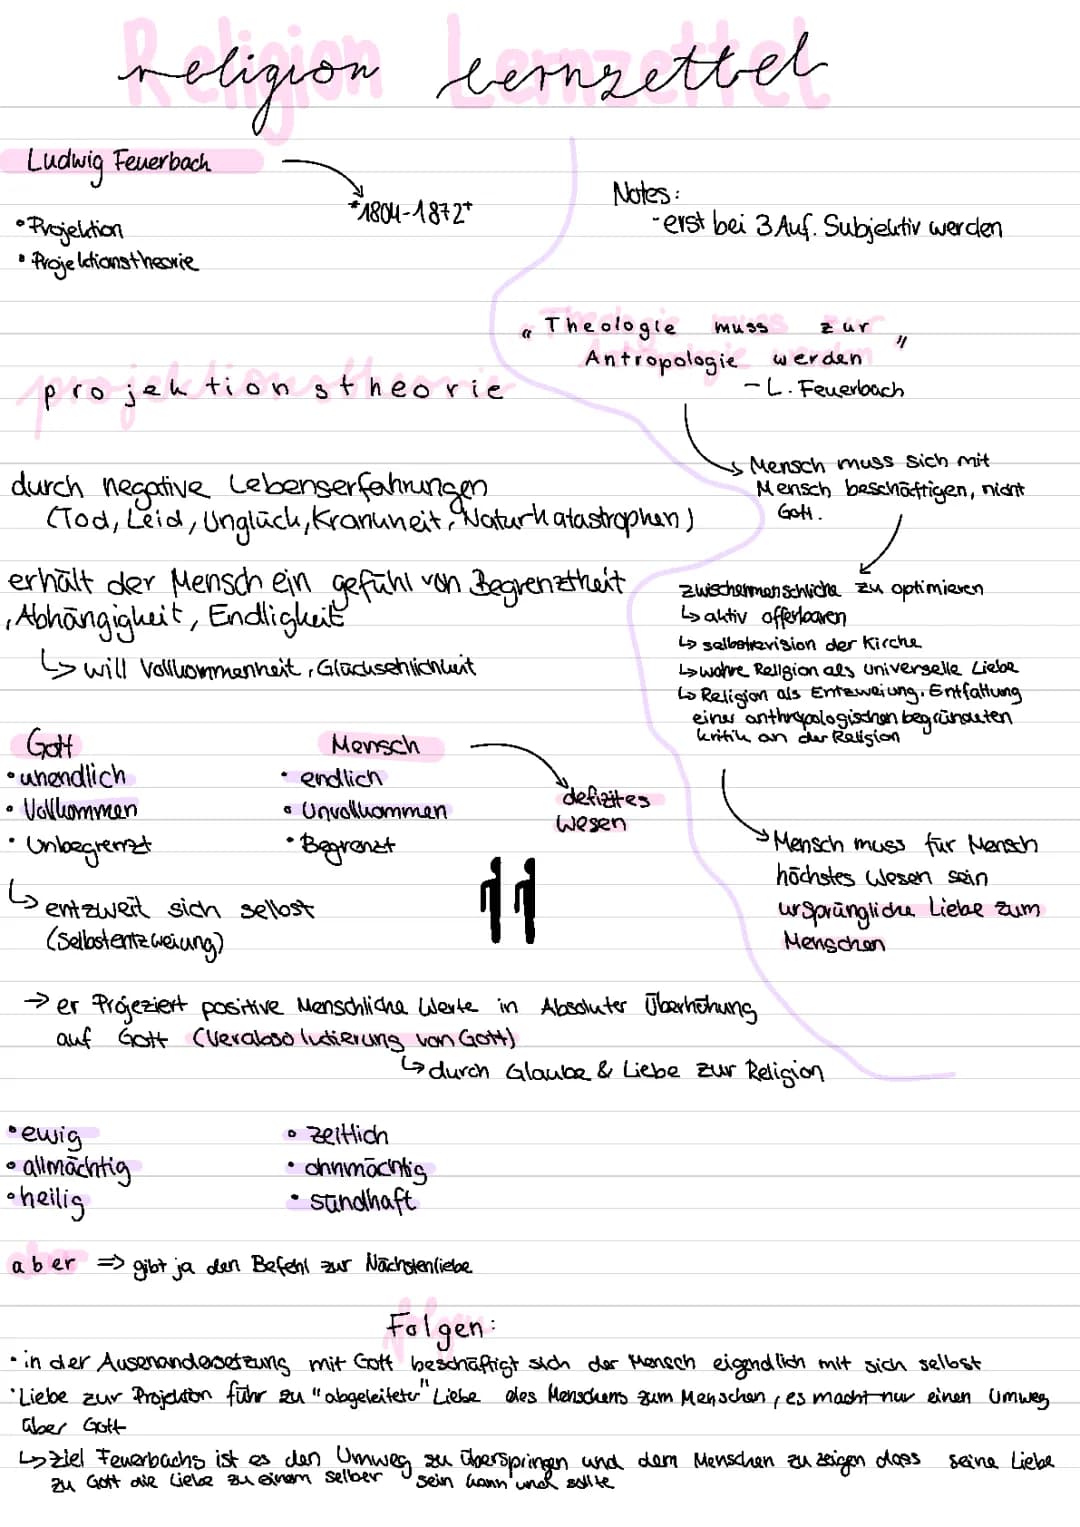 Religion Lernzettel
Ludwig Feuerbach
*1804-1872+
• Projektion
• Projektionstheorie
Notes:
- erst bei 3 Auf. Subjektiv werden
"Theologie muss zur
Antropologie werden"
- L. Feuerbach
projektionstheorie
↳ Mensch muss sich mit
Mensch beschäftigen, nicht
Gott.
durch negative Lebenserfahrungen
(Tod, Leid, Unglück, Krankheit, Naturkatastrophen)
erhält der Mensch ein gefühl von Begrenztheit
, Abhängigkeit, Endligkeit
↳ will Vollkommenheit, Glücksehlichkeit
zwischenmenschliche zu optimieren
↳ aktiv offenbaren
↳ selbstrevision der Kirche
↳ wahre Religion als universelle Liebe
↳ Religion als Entzweiung. Entfaltung
einer anthropologischen begründeten
kritik an der Religion
Gott
• unendlich
• Vollkommen
• Unbegrenzt
Mensch
• endlich
• Unvollkommen
• Begrenzt
defizites
Wesen
↳ entzweit sich selbst
(Selbstentzweiung)
Mensch muss für Mensch
höchstes Wesen sein
ursprüngliche Liebe zum
Menschen
→ er Projeziert positive Menschliche Werte in Absoluter Überhöhung
auf Gott (Verabsolutierung von Gott)
↳ durch Glaube & Liebe zur Religion
• ewig
• allmächtig
• heilig
• zeitlich
• ohnmächtig
• sündhaft
aber => gibt ja den Befehl zur Nächstenliebe
Folgen:
• in der Ausenandersetzung mit Gott beschäftigt sich der Mensch eigendlich mit sich selbst
• Liebe zur Projektion führ zu "abgeleiteter" Liebe des Menschens zum Menschen, es macht nur einen Umweg
über Gott
↳ ziel Feuerbachs ist es den Umweg zu überspringen und dem Menschen zu zeigen dass seine Liebe
zu Gott die Liebe zu einem selber sein kann und sollte